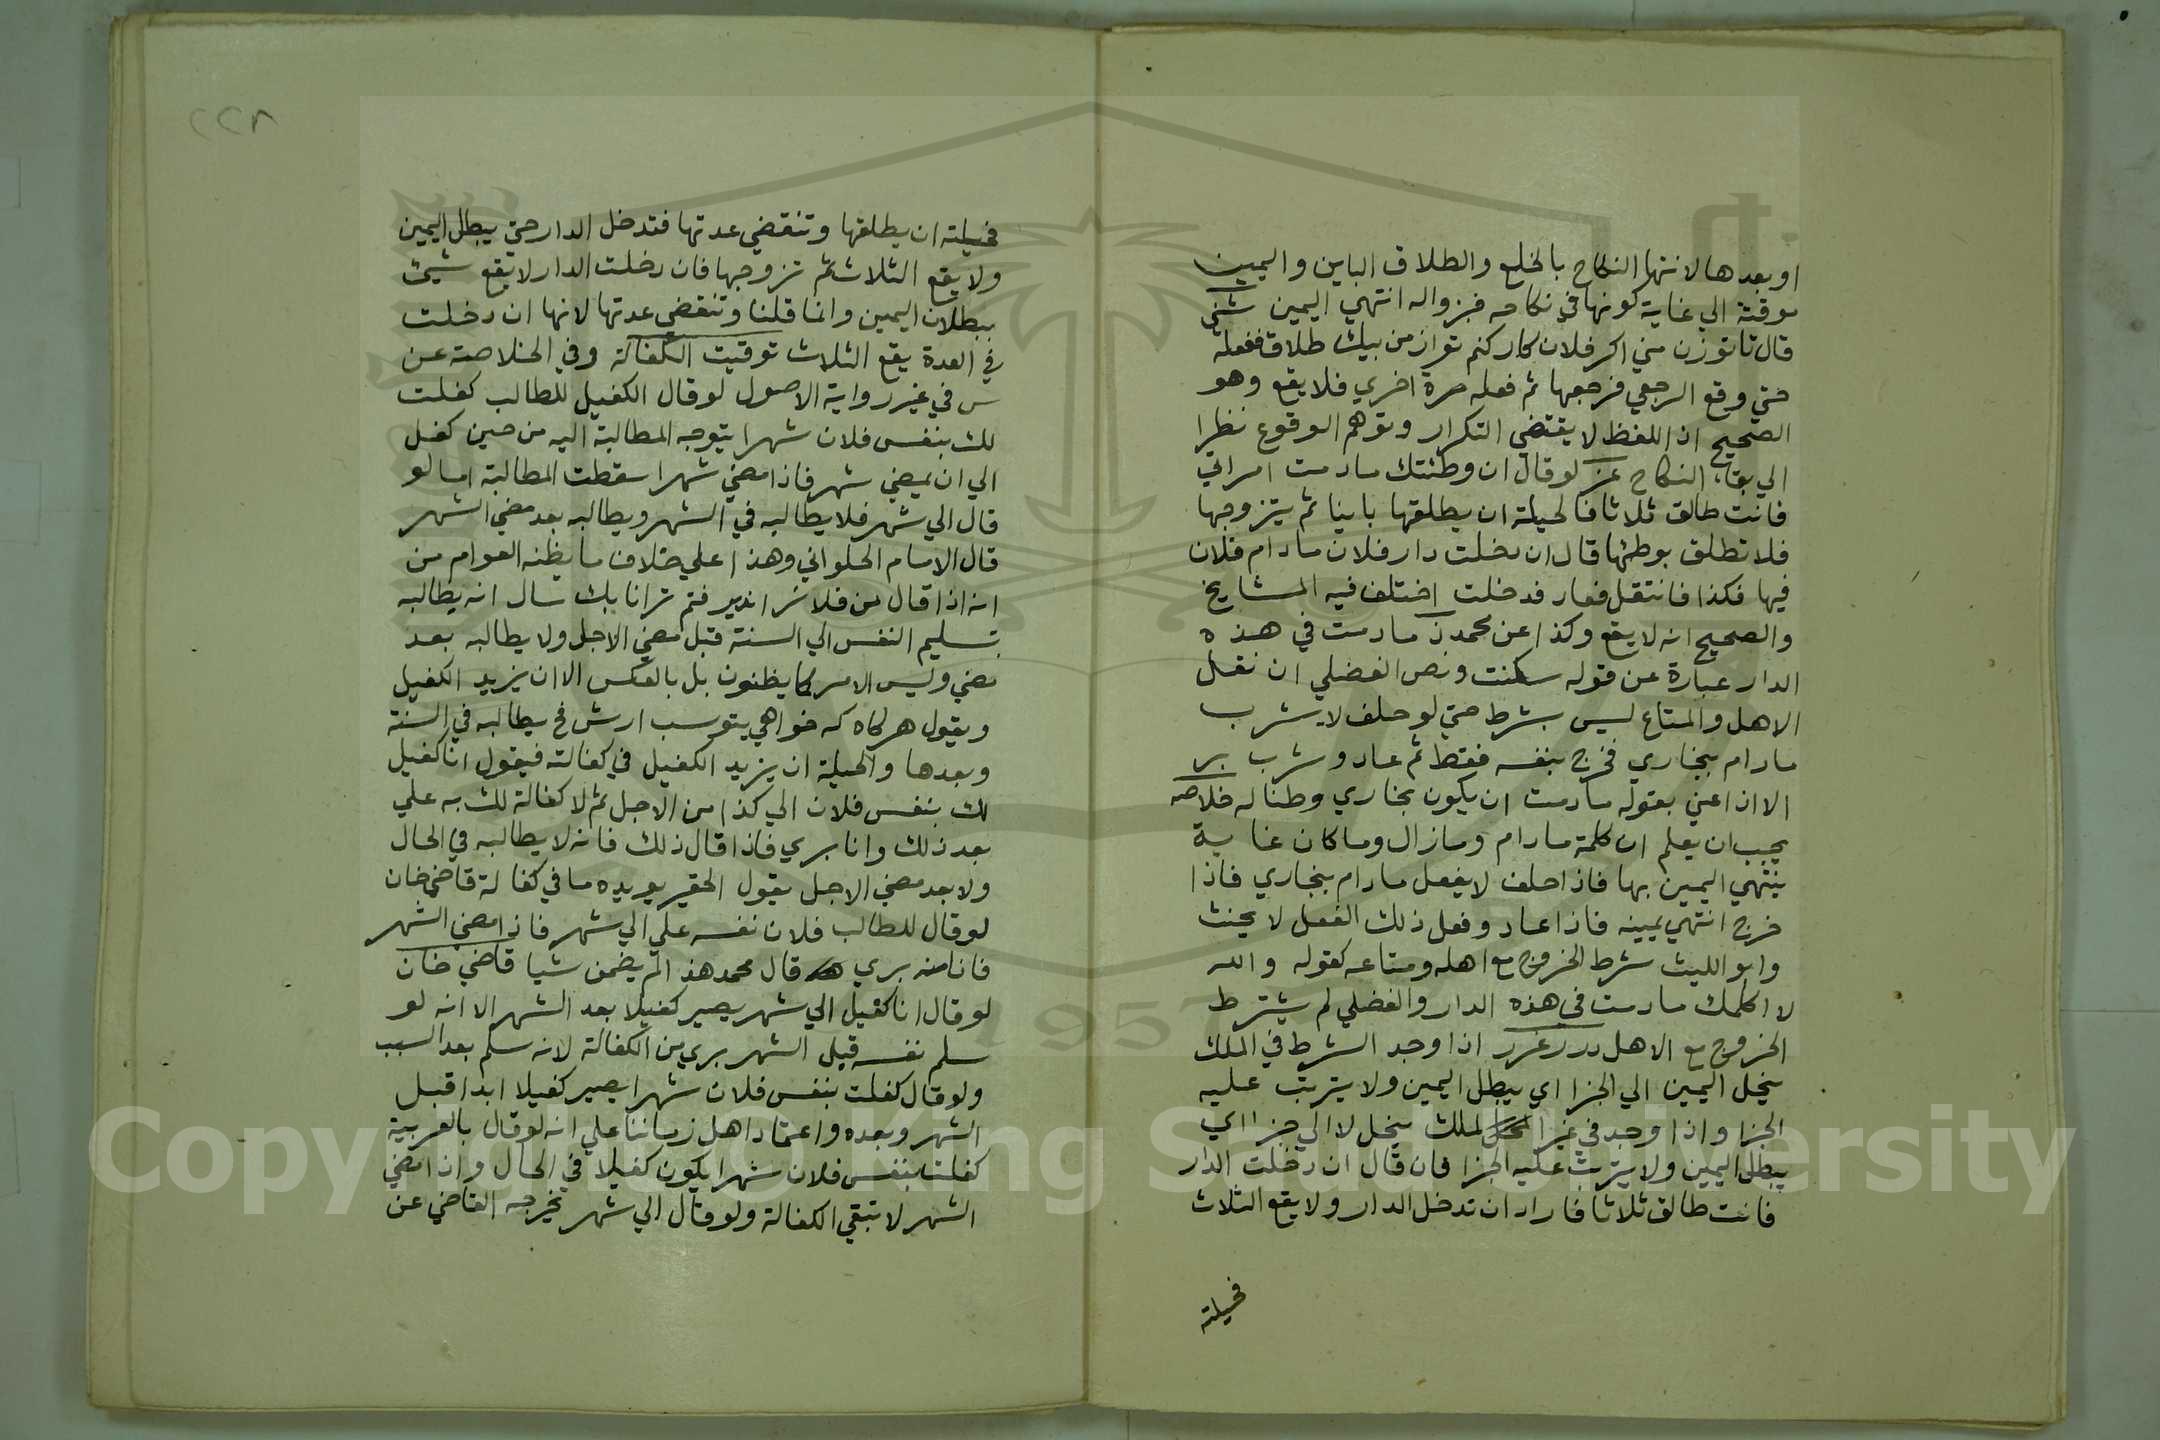 او بعدها لانتها النكاح بالخلع والطلاق الباين واليمين
موقتة الي غاية كونها في نكاحه فبزواله انتهي اليمين شني
قال تا توزن مني اكر فلان كار كنم تو از من بيك طلاق ففعله
حتي وقع الرجعي فرجعها ثم فعله مرة اخري فلا يقع وهو
الصحيح اذ اللفظ لا يقتضي التكرار وتوهم الوقوع نظرا
الي بقاء النكاح عز لو قال ان وطئتك مادمت امراتي
فانت طالق ثلاثا فالحيلة ان يطلقها باينا ثم يتزوجها
فلا تطلق بوطئها قال ان دخلت دار فلان مادام فلان
فيها فكذا فانتقل فعاد فدخلت اختلف فيه المشايخ
والصحيح انه لا يقع وكذا عن محمد ز مادمت في هذه
الدار عبارة عن قوله سكنت ونص الفضلي ان نقل
الاهل والمتاع ليس بشرط حتي لو حلف لا يشرب
مادام ببخاري فخرج بنفسه فقط ثم عاد وشرب بر
الا اذا عني بقوله مادمت ان يكون بخاري وطنا له خلاصه
يجب ان يعلم ان كلمة مادام ومازال وماكان غاية
ينتهي اليمين بها فاذا حلف لا يفعل مادام ببخاري فاذا
خرج انتهي يمينه فاذا عاد وفعل ذلك الفعل لا يحنث
وابو الليث شرط الخروج مع اهله ومتاعه كقوله والله
لا اكلمك مادمت في هذه الدار والفضلي لم يشترط
الخروج مع الاهل درر غرر اذا وجد الشرط في الملك
ينحل اليمين الي الجزا اي يبطل اليمين ولا يترتب عليه
الجزا واذا وجد في غير الملك ينحل لا الي جزا اي
يبطل اليمين ولا يترتب عليه الجزا فان قال ان دخلت الدار
فانت طالق ثلاثا فاراد ان تدخل الدار ولا يقع الثلاث
فحيلته
٢٢٨
فحيلته ان يطلقها وتنقضي عدتها فتدخل الدار حتي يبطل اليمين
ولا يقع الثلاث ثم تزوجها فان دخلت الدار لا يقع شيئ
ببطلان اليمين وانما قلنا وتنقضي عدتها لانها ان دخلت
في العدة يقع الثلاث توقيت الكفالة وفي الخلاصة عن
س في غير رواية الاصول لو قال الكفيل للطالب كفلت
لك بنفس فلان شهرا يتوجه المطالبة اليه من حين كفل
الي ان يمضي شهر فاذا مضي شهرا سقطت المطالبة اما لو
قال الي شهر فلا يطالبه في الشهر ويطالبه بعد مضي الشهر
قال الامام الحلواني وهذا علي خلاف ما يظنه العوام من
انه اذا قال من فلانرا اندير فتم ترا تا يك سال انه يطالبه
بتسليم النفس الي السنة قبل مضي الاجل ولا يطالبه بعد
مضي وليس الامر كما يظنون بل بالعكس الا ان يزيد الكفيل
ويقول هركاه كه خواهي بتو سب ارش فح يطالبه في السنة
وبعدها والحيلة ان يزيد الكفيل في كفالته فيقول انا كفيل
لك بنفس فلان الي كذا من الاجل ثم لا كفالة لك به علي
بعد ذلك وانا بري فاذا قال ذلك فانه لا يطالبه في الحال
ولا بعد مضي الاجل يقول الحقير يويده ما في كفالة قاضي خان
لو قال للطالب فلان نفسه علي الي شهر فاذا مضي الشهر
فانا منه بري قال محمد هذا لم يضمن شيا قاضي خان
لو قال انا كفيل الي شهر يصير كفيلا بعد الشهر الا انه لو
سلم نفسه قبل الشهر بري من الكفالة لانه سلم بعد السبب
ولو قال كفلت بنفس فلان شهرا يصير كفيلا ابدا قبل
الشهر وبعده واعتماد اهل زماننا علي انه لو قال بالعربية
كفلت بنفس فلان شهرا يكون كفيلا في الحال واذا مضي
الشهر لا تبقي الكفالة ولو قال الي شهر يخرجه القاضي عن
1957
Copyright © King Saud University